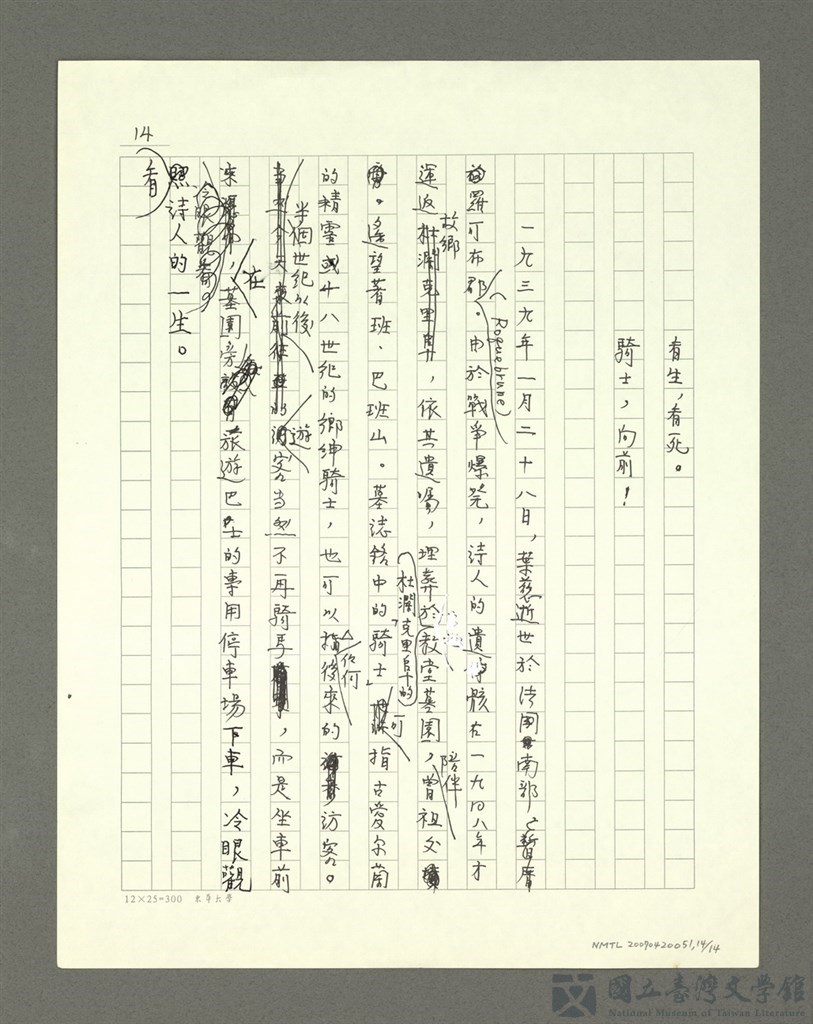 14
有生，有死。
騎士，向前！
一九三九年一月二十八日，葉慈逝世於法國南部，暫厝
於羅可布郡(Roquebrune)。由於戰爭爆發，詩人的遺骸在一九四八年才
運返故鄉，依其遺囑，埋葬於(杜潤克里夫的)教堂墓園，曾祖父陪伴
。遙望著班．巴班山。墓誌銘中的「騎士」可指古愛爾蘭
的精靈或十八世紀的鄉紳騎士，也可以指後來的任何訪客。
半個世紀以後遊客當然不再騎馬，而是坐車前
來，在墓園旁旅遊巴士的專用停車場下車，冷眼觀
看詩人的一生。
12×25=300 東華大學
NMTL 20090420051,14/14
國立臺灣文學館
National Museum of Taiwan Literature